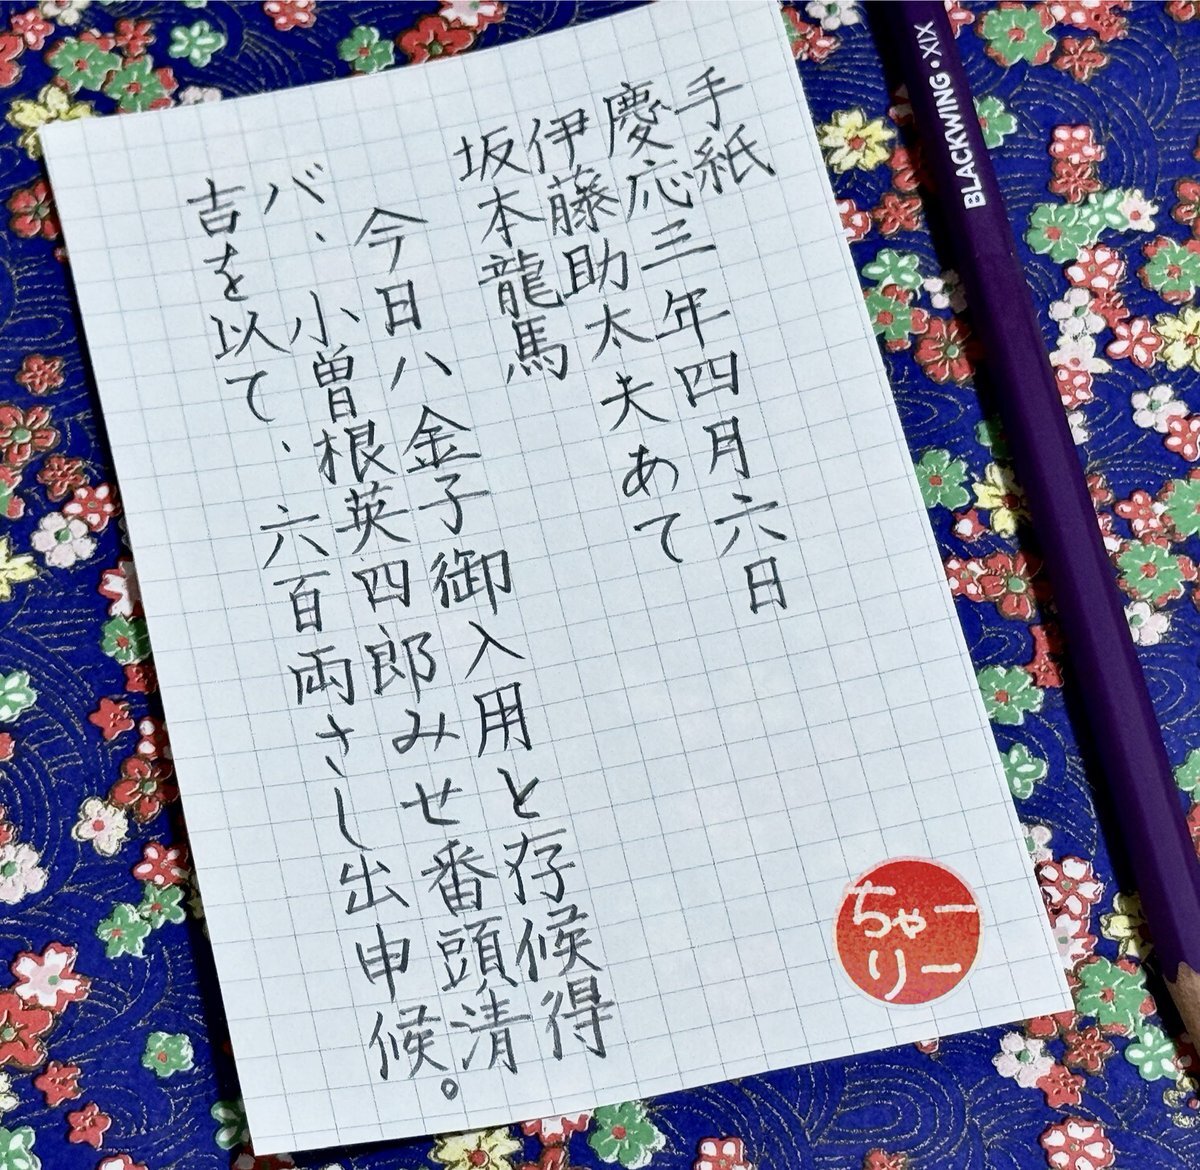 手紙
慶応三年四月六日
伊藤助太夫あて
坂本龍馬
今日ハ金子御入用と存候得
バ、小曽根英四郎みせ番頭清
吉を以て、六百両さし出申候。
ちゃー
りー
BLACKWING・XIX